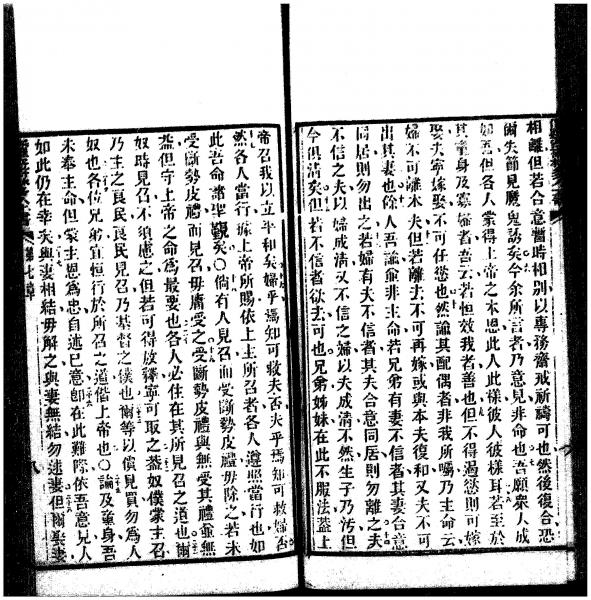 相離但若合意暫時相別以專務齋戒祈禱可也然後復合恐
爾失節見魔鬼誘矣今余所言者乃意見非命也吾願衆人成
如吾但各人蒙得上帝之本恩此人此樣彼人彼樣耳若至於
其童身及寡婦者吾云若恒效我者善也但不得過慾則可嫁
娶夫寧嫁娶不可任慾也然論其配偶者非我所囑乃主命云
婦不可離本夫但若離去不可再嫁或與本夫復和又夫不可
出其妻也餘人吾論之並非主命若兄弟有妻不信者其妻合意
同居則勿出之若婦有夫不信者其夫合意同居則勿離之夫
不信之夫以婦成淸又不信之婦以夫成淸不然生子乃污但
今俱淸矣但若不信者欲去可也兄弟姊妹在此不服法蓋上
帝召我以立平和矣婦乎焉知可救夫否夫乎焉知可救婦否
然各人當行據上帝所賜依上主所召者各人遵照當行也如
此吾命諸聖觀矣〇倘有人見召而受斷勢皮禮毋除之若未
受斷勢皮禮而見召毋庸受之受斷勢皮禮與無受其禮並無
益但守上帝之命爲最要也各人必住在其所見召之道也爾
奴時見召不須慮之但若可得放釋寧可取之蓋奴僕蒙主召
乃主之良民良民見召乃基督之僕也爾等以價見買勿爲人
奴也各位兄弟宜恒行於所召之道偕上帝也〇論及童身吾
未奉主命但蒙主恩爲忠自述已意卽在此難際依吾意見人
如此仍在幸矣與妻相結毋解之與妻無結勿速妻但爾娶妻
第七章